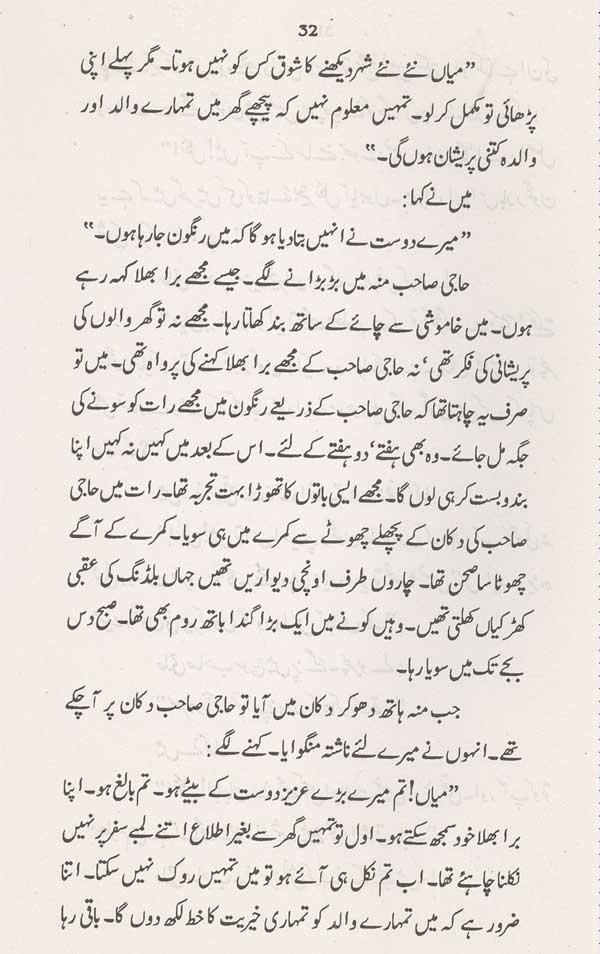 32
”میاں نئے نئے شہر دیکھنے کا شوق کس کو نہیں ہوتا۔ مگر پہلے اپنی
پڑھائی تو مکمل کر لو۔ تمہیں معلوم نہیں کہ پیچھے گھر میں تمہارے والد اور
والدہ کتنی پریشان ہوں گی۔“
میں نے کہا:
”میرے دوست نے انہیں بتا دیا ہو گا کہ میں رنگون جا رہا ہوں۔“
حاجی صاحب منہ میں بڑبڑانے لگے۔ جیسے مجھے برا بھلا کہہ رہے
ہوں۔ میں خاموشی سے چائے کے ساتھ بند کھاتا رہا۔ مجھے نہ تو گھر والوں کی
پریشانی کی فکر تھی‘ نہ حاجی صاحب کے مجھے برا بھلا کہنے کی پرواہ تھی۔ میں تو
صرف یہ چاہتا تھا کہ حاجی صاحب کے ذریعے رنگون میں مجھے رات کو سونے کی
جگہ مل جائے۔ وہ بھی ہفتے‘ دو ہفتے کے لئے۔ اس کے بعد میں کہیں نہ کہیں اپنا
بندوبست کر ہی لوں گا۔ مجھے ایسی باتوں کا تھوڑا بہت تجربہ تھا۔ رات میں حاجی
صاحب کی دکان کے پچھلے چھوٹے سے کمرے میں ہی سویا۔ کمرے کے آگے
چھوٹا سا صحن تھا۔ چاروں طرف اونچی دیواریں تھیں جہاں بلڈنگ کی عقبی
کھڑکیاں کھلتی تھیں۔ وہیں کونے میں ایک بڑا گندا باتھ روم بھی تھا۔ صبح دس
بجے تک میں سویا رہا۔
جب منہ ہاتھ دھو کر دکان میں آیا تو حاجی صاحب دکان پر آ چکے
تھے۔ انہوں نے میرے لئے ناشتہ منگوایا۔ کہنے لگے:
”میاں! تم میرے بڑے عزیز دوست کے بیٹے ہو۔ تم بالغ ہو۔ اپنا
برا بھلا خود سمجھ سکتے ہو۔ اول تو تمہیں گھر سے بغیر اطلاع اتنے لمبے سفر پر نہیں
نکلنا چاہئے تھا۔ اب تم نکل ہی آئے ہو تو میں تمہیں روک نہیں سکتا۔ اتنا
ضرور ہے کہ میں تمہارے والد کو تمہاری خیریت کا خط لکھ دوں گا۔ باقی رہا